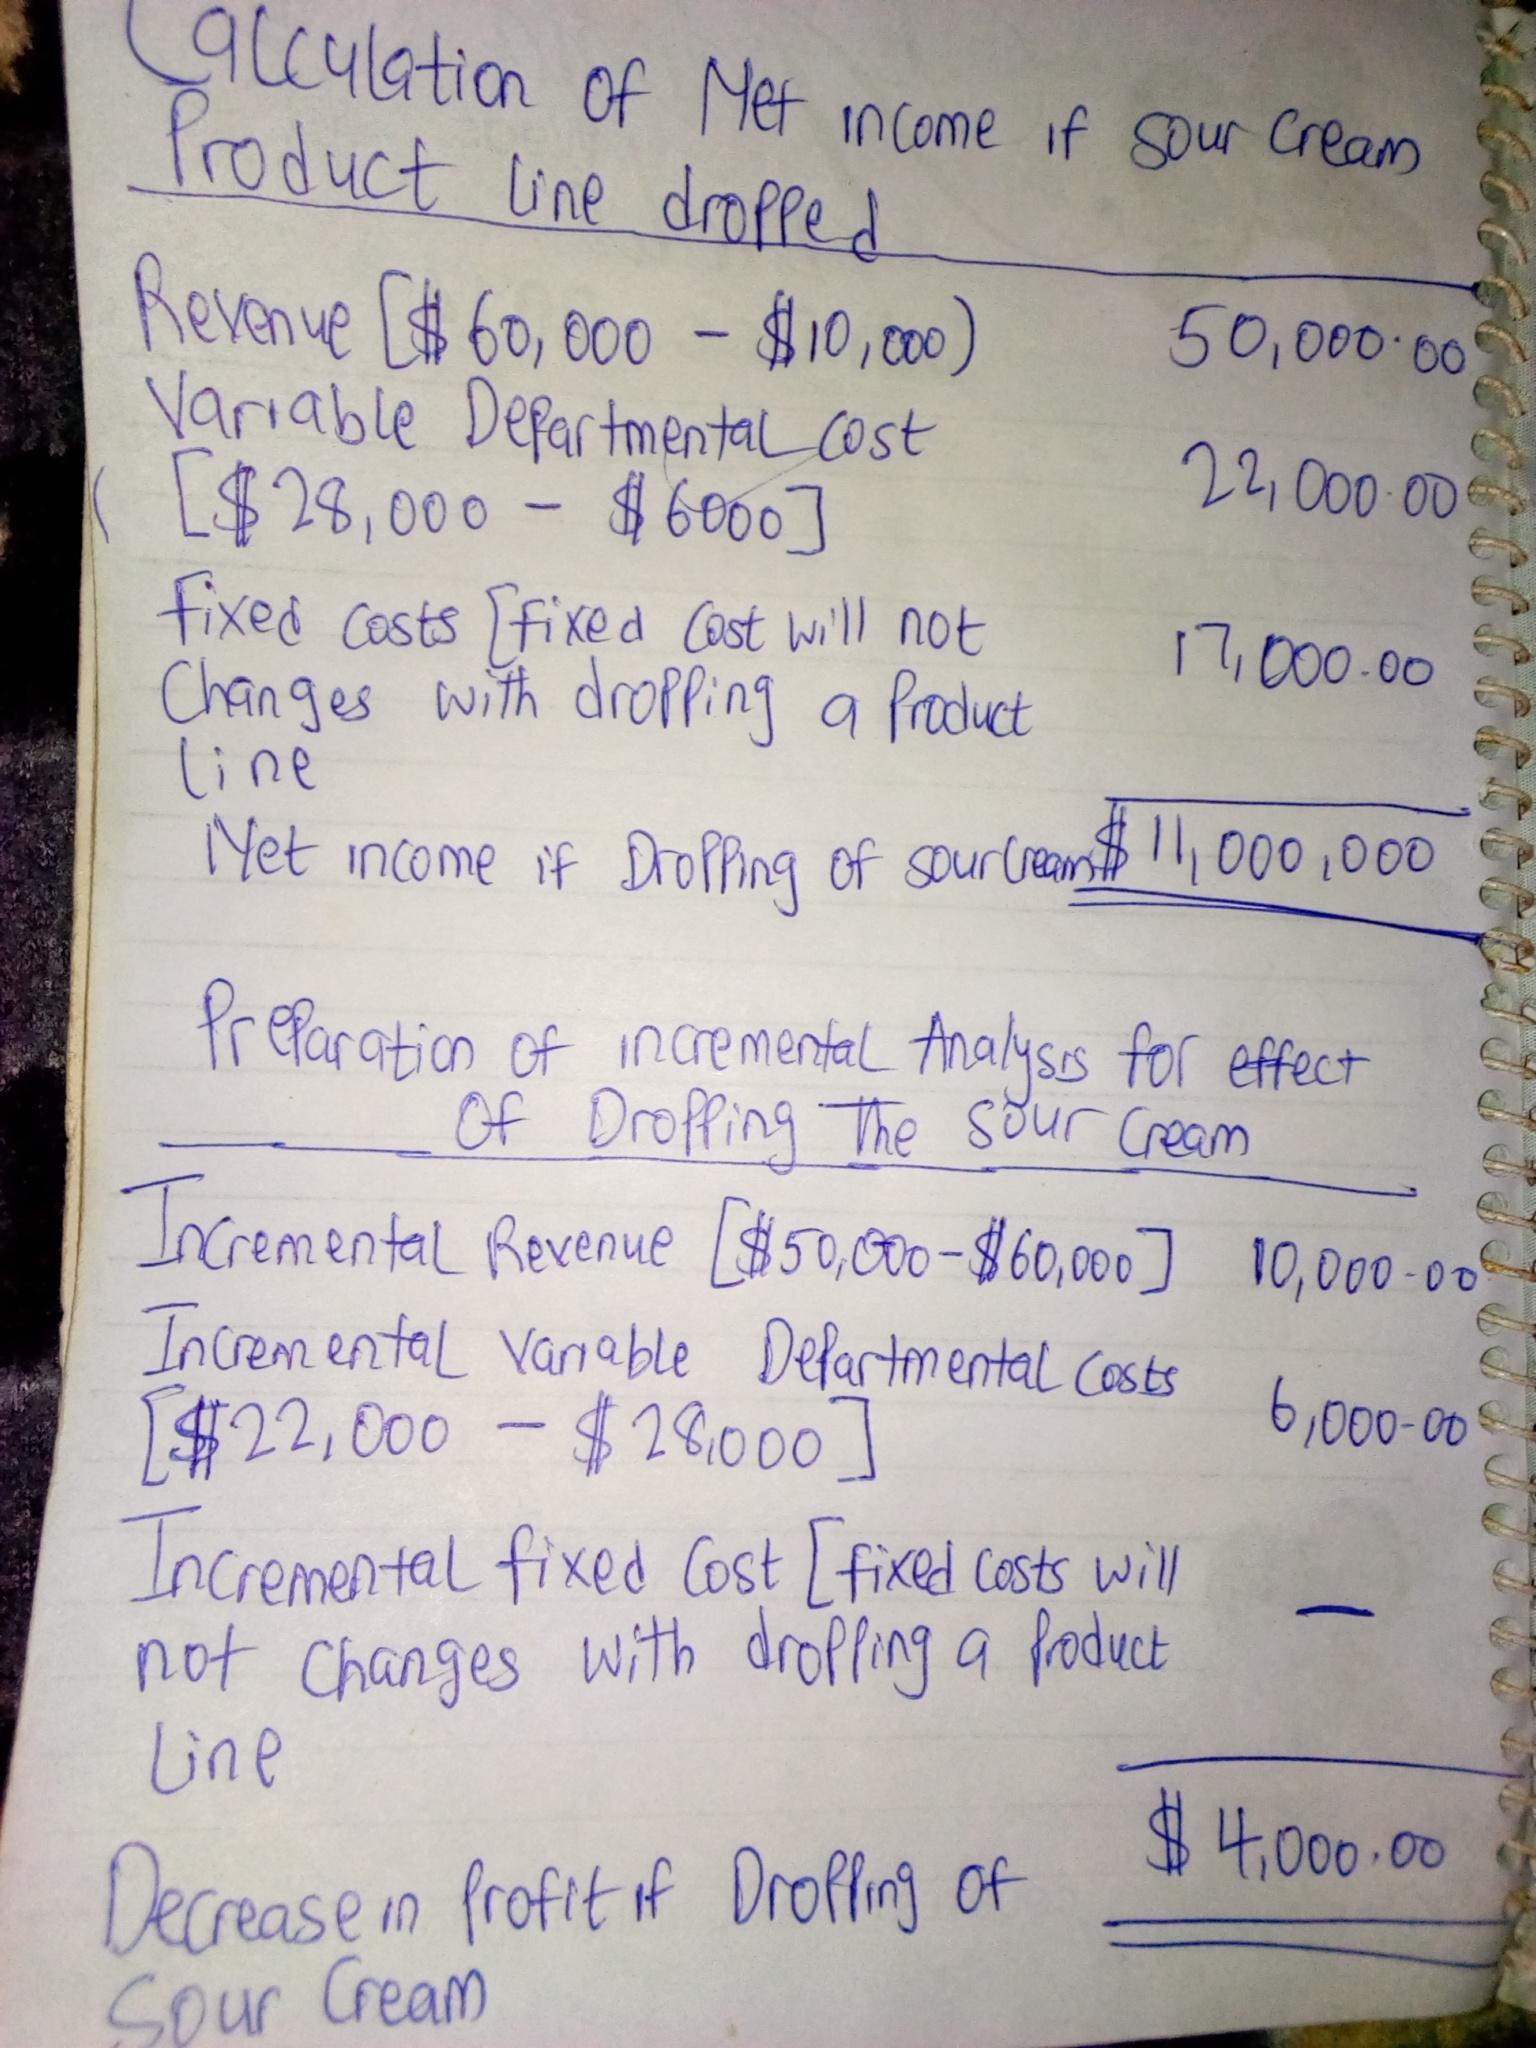 Calculation of Net income if sour cream
Product line dropped
Revenue [$60,000 - $10,000) 50,000.00
Variable Departmental cost
[$28,000 - $6000] 22,000.00
Fixed costs [fixed cost will not 17,000.00
Changes with dropping a Product
line
Net income if Dropping of sour cream $11,000,000
Preparation of incremental Analysis for effect
Of Dropping The sour cream
Incremental Revenue [$50,000-$60,000] 10,000-00
Incremental Variable Departmental costs
[$22,000 - $28,000] 6,000-00
Incremental fixed cost [fixed costs will —
not changes with dropping a product
Line
Decrease in profit if Dropping of $4,000.00
Sour Cream